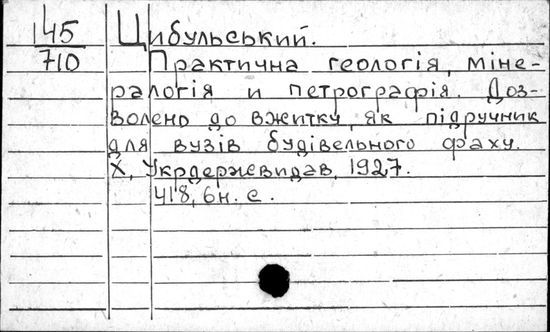 145
710
Цибульський.
Практична геологія, міне-
ралогія и петрографія. Доз-
волено до вжитку, як підручник
для вузів будівельного фаху.
Х, Укрдержевидав, 1927.
418, 6н. с.